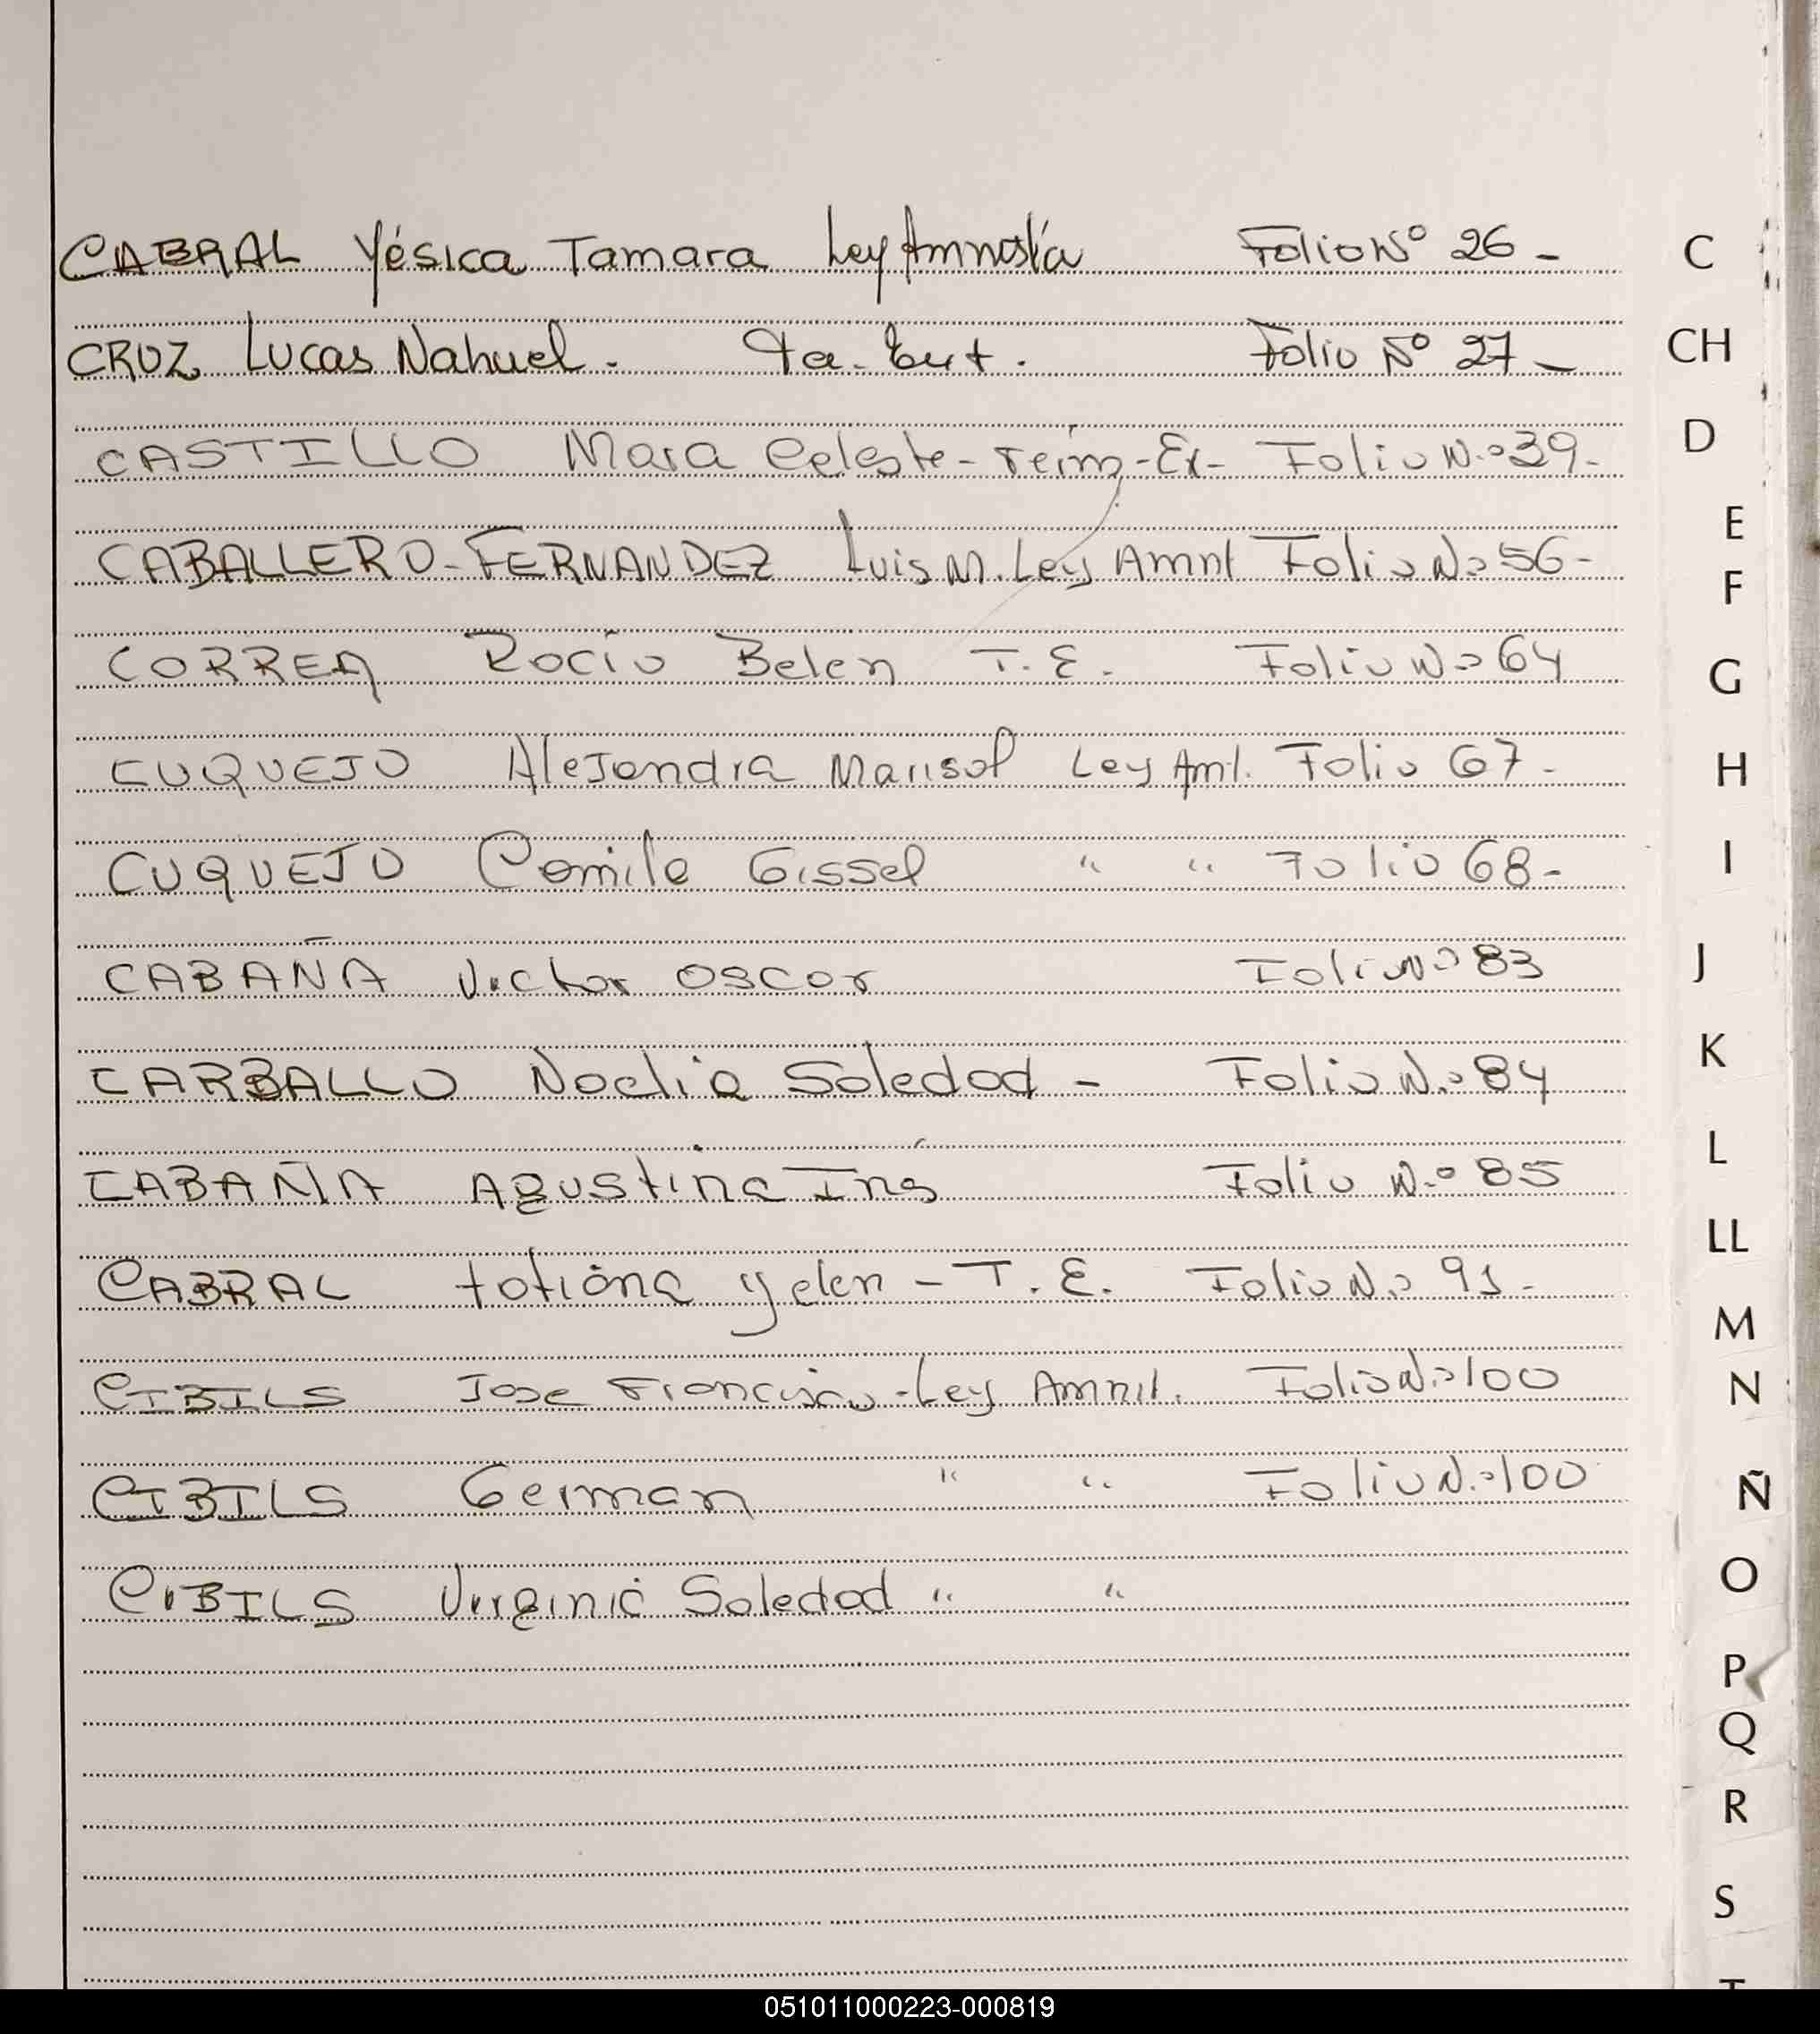 CABRAL Yésica Tamara Ley Amnistía Folio Nº 26 -
CRUZ Lucas Nahuel. Folio Nº 27 -
CASTILLO Mara Celeste - Térm - Ex - Folio N.º 39 -
CABALLERO - FERNANDEZ Luis M. Ley Amnt Folio Nº 56 -
CORREA Rocio Belen T. E. Folio Nº 64
CUQUEJO Alejandra Marisol Ley Amt. Folio 67 -
CUQUEJO Camila Gissel " " Folio 68 -
CABAÑA Victor Oscar Folio Nº 83
CARBALLO Noelia Soledad - Folio N.º 84
CABAÑA Agustina Inés Folio N.º 85
CABRAL tatiana yelen - T. E. Folio N.º 91 -
CIBILS Jose Francisco - Ley Amnt. Folio N.º 100
CIBILS German " " Folio N.º 100
CIBILS Virginia Soledad " "
C
CH
D
E
F
G
H
I
J
K
L
LL
M
N
Ñ
O
P
Q
R
S
051011000223-000819